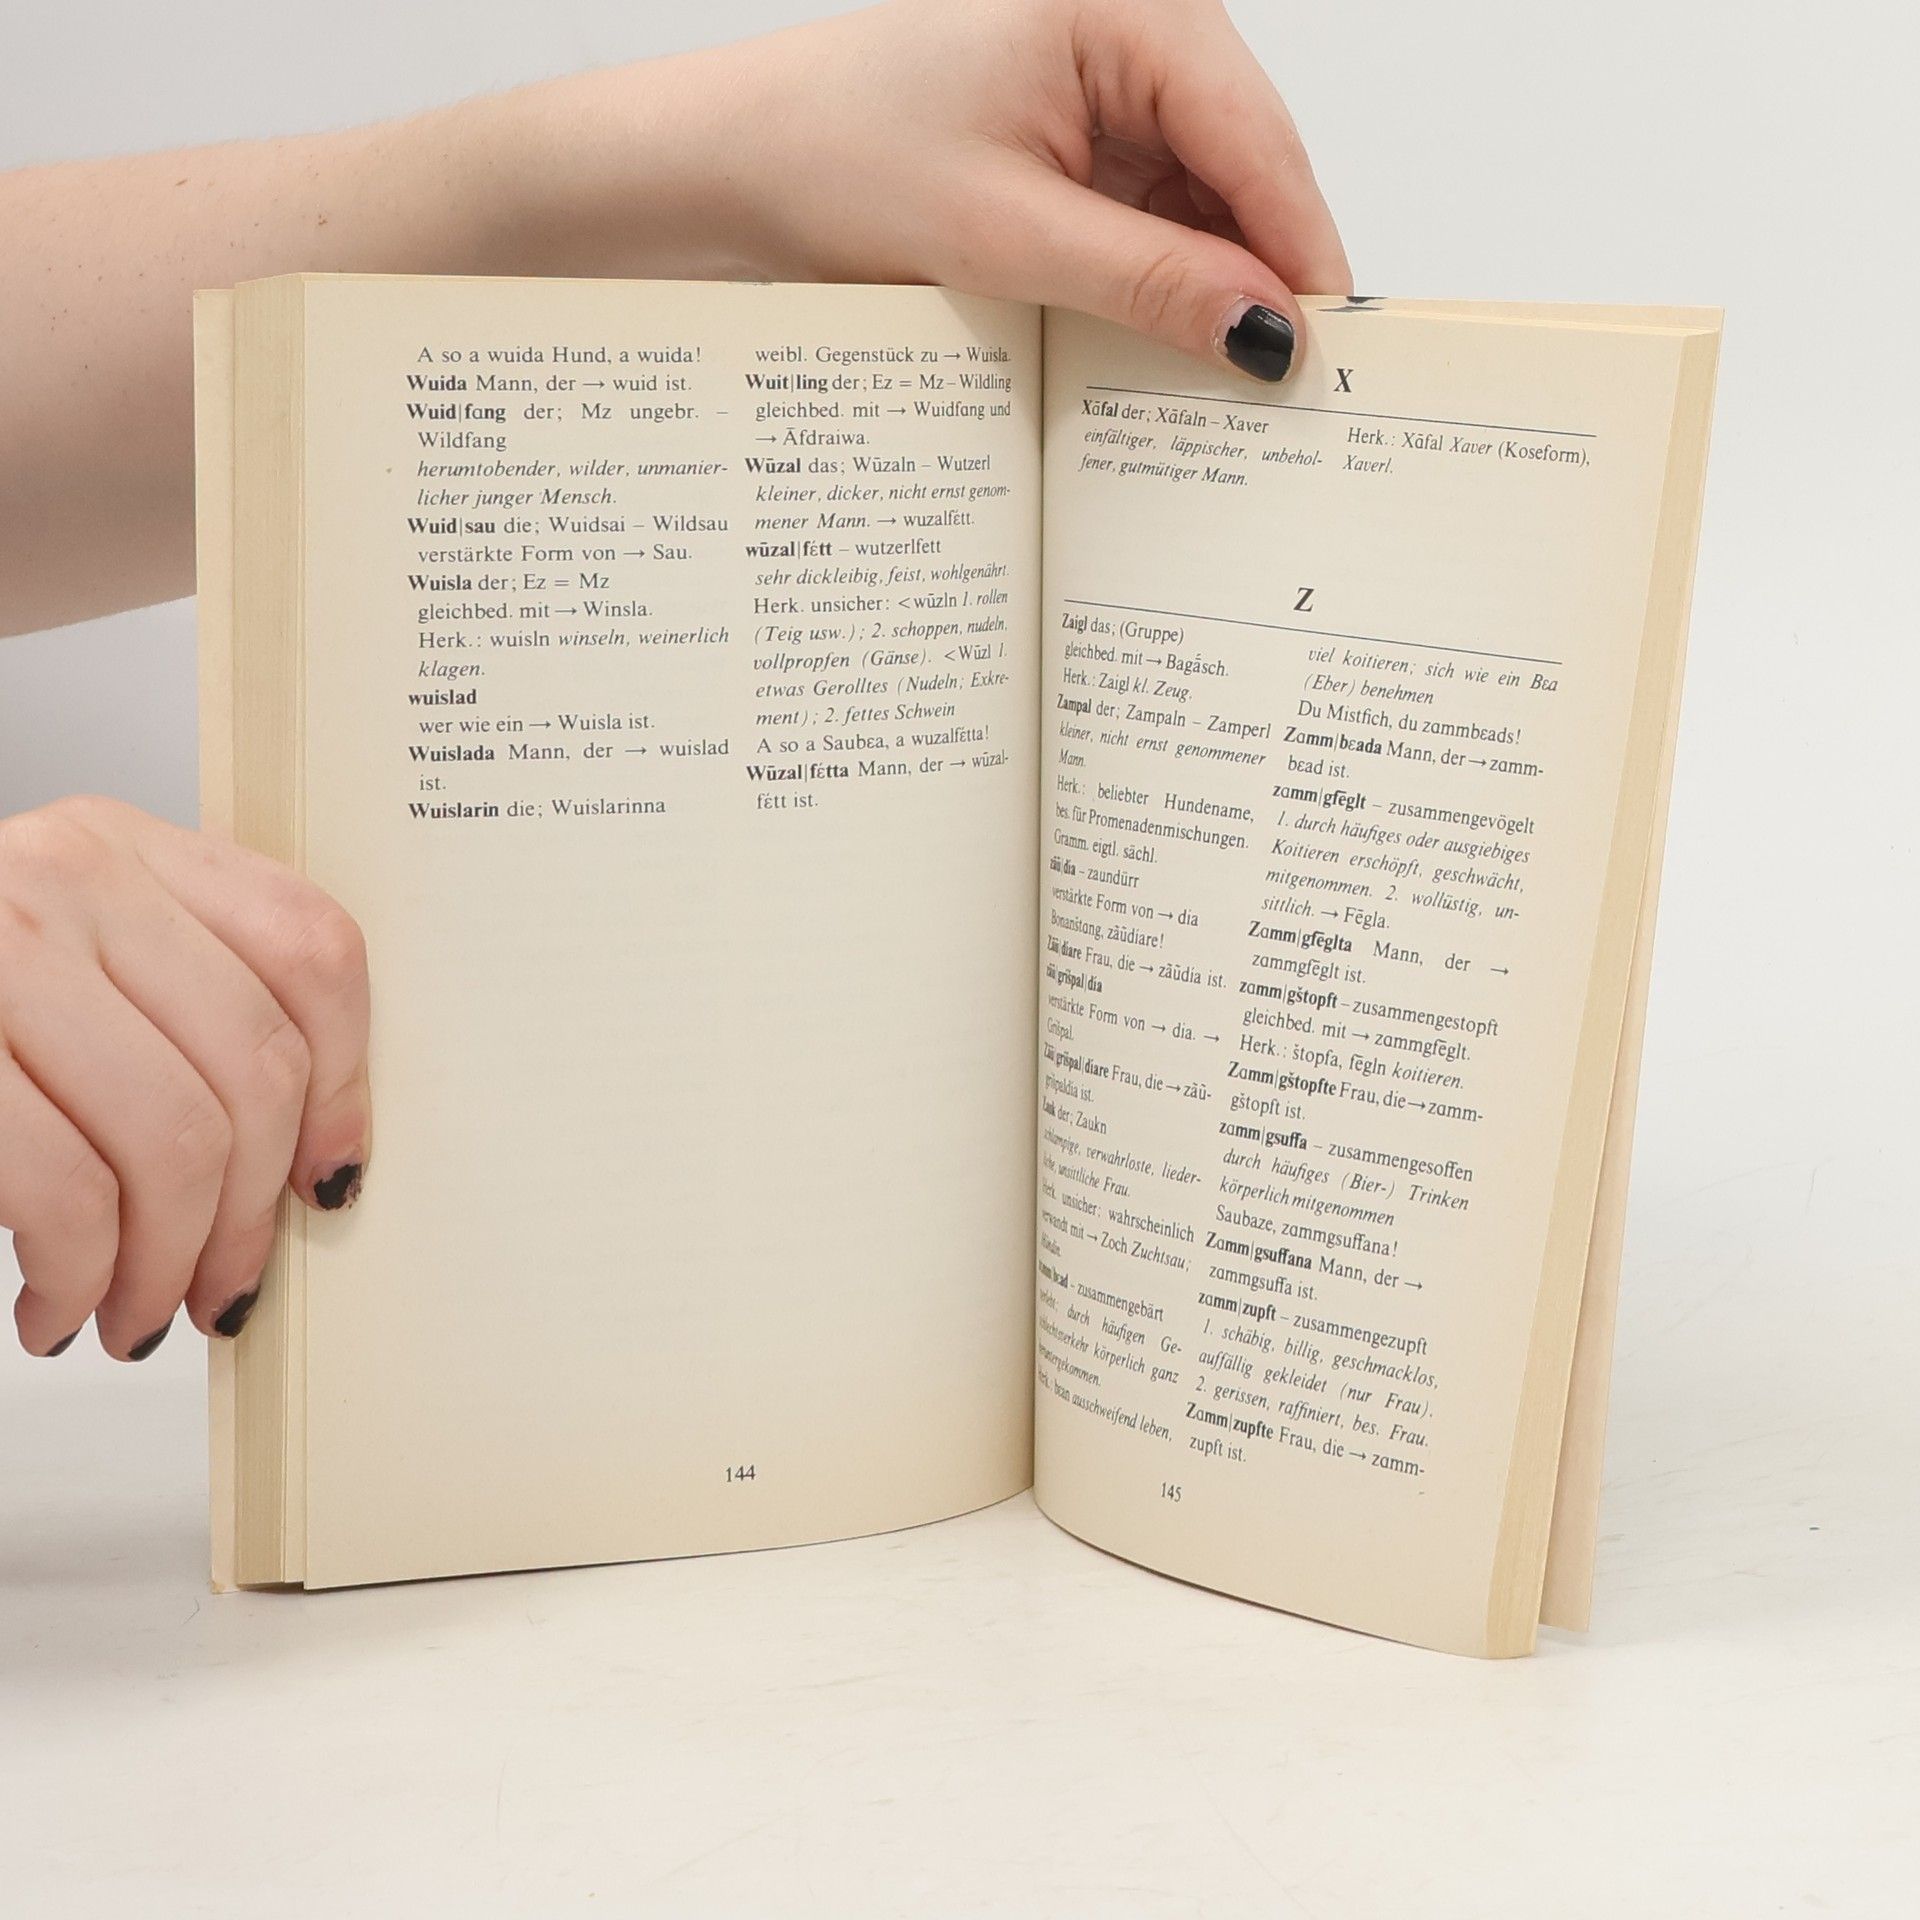 A so a wuida Hund, a wuida!
Wuida Mann, der → wuid ist.
Wuid|fɑng der; Mz ungebr. –
Wildfang
herumtobender, wilder, unmanier-
licher junger Mensch.
Wuid|sau die; Wuidsai – Wildsau
verstärkte Form von → Sau.
Wuisla der; Ez = Mz
gleichbed. mit → Winsla.
Herk.: wuisln winseln, weinerlich
klagen.
wuislad
wer wie ein → Wuisla ist.
Wuislada Mann, der → wuislad
ist.
Wuislarin die; Wuislarinna
weibl. Gegenstück zu → Wuisla.
Wuit|ling der; Ez = Mz – Wildling
gleichbed. mit → Wuidfɑng und
→ Āfdraiwa.
Wūzal das; Wūzaln – Wutzerl
kleiner, dicker, nicht ernst genom-
mener Mann. → wuzalfέtt.
wūzal|fέtt – wutzerlfett
sehr dickleibig, feist, wohlgenährt.
Herk. unsicher: <wūzln 1. rollen
(Teig usw.); 2. schoppen, nudeln,
vollpropfen (Gänse). <Wūzl 1.
etwas Gerolltes (Nudeln; Exkre-
ment); 2. fettes Schwein
A so a Saubεa, a wuzalfέtta!
Wūzal|fέtta Mann, der → wūzal-
fέtt ist.
144
X
Xāfal der; Xāfaln – Xaver
einfältiger, läppischer, unbehol-
fener, gutmütiger Mann.
Herk.: Xāfal Xaver (Koseform),
Xaverl.
Z
Zaigl das; (Gruppe)
gleichbed. mit → Bagā́sch.
Herk.: Zaigl kl. Zeug.
Zampal der; Zampaln – Zamperl
kleiner, nicht ernst genommener
Mann.
Herk.: beliebter Hundename,
bes. für Promenadenmischungen.
Gramm. eigtl. sächl.
zãũ|dia – zaundürr
verstärkte Form von → dia
Bonanštɑng, zãũdíare!
Zãũ|díare Frau, die → zãũdía ist.
zãũ|grišpal|día
verstärkte Form von → dia. →
Grišpal.
Zãũ|grišpal|díare Frau, die → zãũ-
grišpaldía ist.
Zauk der; Zaukn
schlampige, verwahrloste, lieder-
liche, unsittliche Frau.
Herk. unsicher: wahrscheinlich
verwandt mit → Zoch Zuchtsau;
Hündin.
zɑmm|bεad – zusammengebärt
verlebt; durch häufigen Ge-
schlechtsverkehr körperlich ganz
heruntergekommen.
Herk.: bεan ausschweifend leben,
viel koitieren; sich wie ein Bεa
(Eber) benehmen
Du Mistfich, du zɑmmbεads!
Zɑmm|bεada Mann, der → zɑmm-
bεad ist.
zɑmm|gfēglt – zusammengevögelt
1. durch häufiges oder ausgiebiges
Koitieren erschöpft, geschwächt,
mitgenommen. 2. wollüstig, un-
sittlich. → Fēgla.
Zɑmm|gfēglta Mann, der →
zɑmmgfēglt ist.
zɑmm|gštopft – zusammengestopft
gleichbed. mit → zɑmmgfēglt.
Herk.: štopfa, fēgln koitieren.
Zɑmm|gštopfte Frau, die → zɑmm-
gštopft ist.
zɑmm|gsuffa – zusammengesoffen
durch häufiges (Bier-) Trinken
körperlich mitgenommen
Saubaze, zɑmmgsuffana!
Zɑmm|gsuffana Mann, der →
zɑmmgsuffa ist.
zɑmm|zupft – zusammengezupft
1. schäbig, billig, geschmacklos,
auffällig gekleidet (nur Frau).
2. gerissen, raffiniert, bes. Frau.
Zɑmm|zupfte Frau, die → zɑmm-
zupft ist.
145